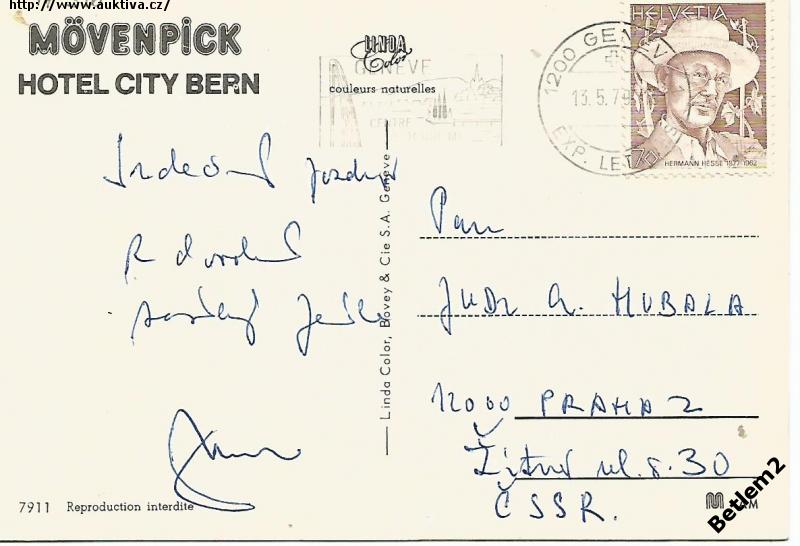 http://www.auktiva.cz/
MÖVENPICK
HOTEL CITY BERN
LINDA
Color
couleurs naturelles
GENÈVE
CENTRE
1200 GENÈV
13.5.79
EXP. LET
HELVETIA
70
HERMANN HESSE 1877-1962
Srdečný pozdrav
z dovolené
Pan
JUDr HUBALA
12000 PRAHA 2
Žitná ul. č. 30
ČSSR.
Linda Color, Bovey & Cie S.A. Genève
7911 Reproduction interdite
Betlem2